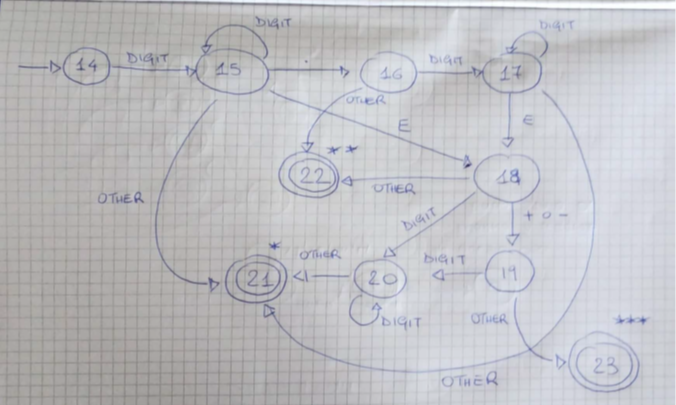 DIGIT
DIGIT
14
DIGIT
15
.
16
DIGIT
17
OTHER
E
E
**
22
OTHER
18
OTHER
DIGIT
+ o -
*
21
OTHER
20
DIGIT
19
DIGIT
OTHER
***
23
OTHER